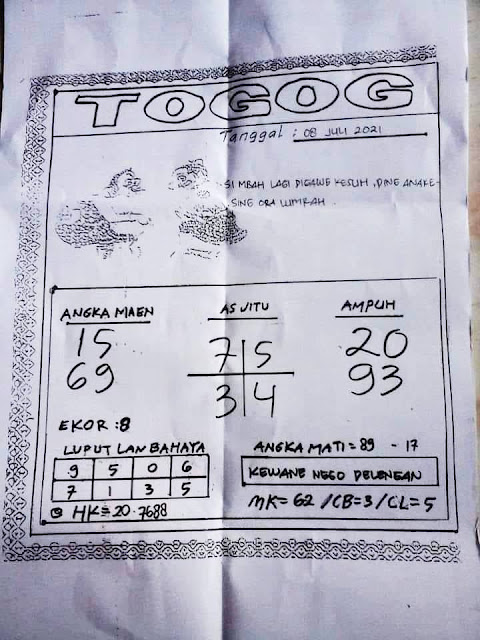 TOGOG
Tanggal : 08 JULI 2021
SI MBAH LAGI DIGAWE KESUH, DINE ANAKE-
SING ORA LUMRAH.
ANGKA MAEN
15
69
AS JITU
7 5
3 4
AMPUH
20
93
EKOR : 8
LUPUT LAN BAHAYA
9 5 0 6
7 1 3 5
HK = 20-7688
ANGKA MATI = 89 - 17
KEWANE NEGO DELENGAN
MK = 62 / CB = 3 / CL = 5